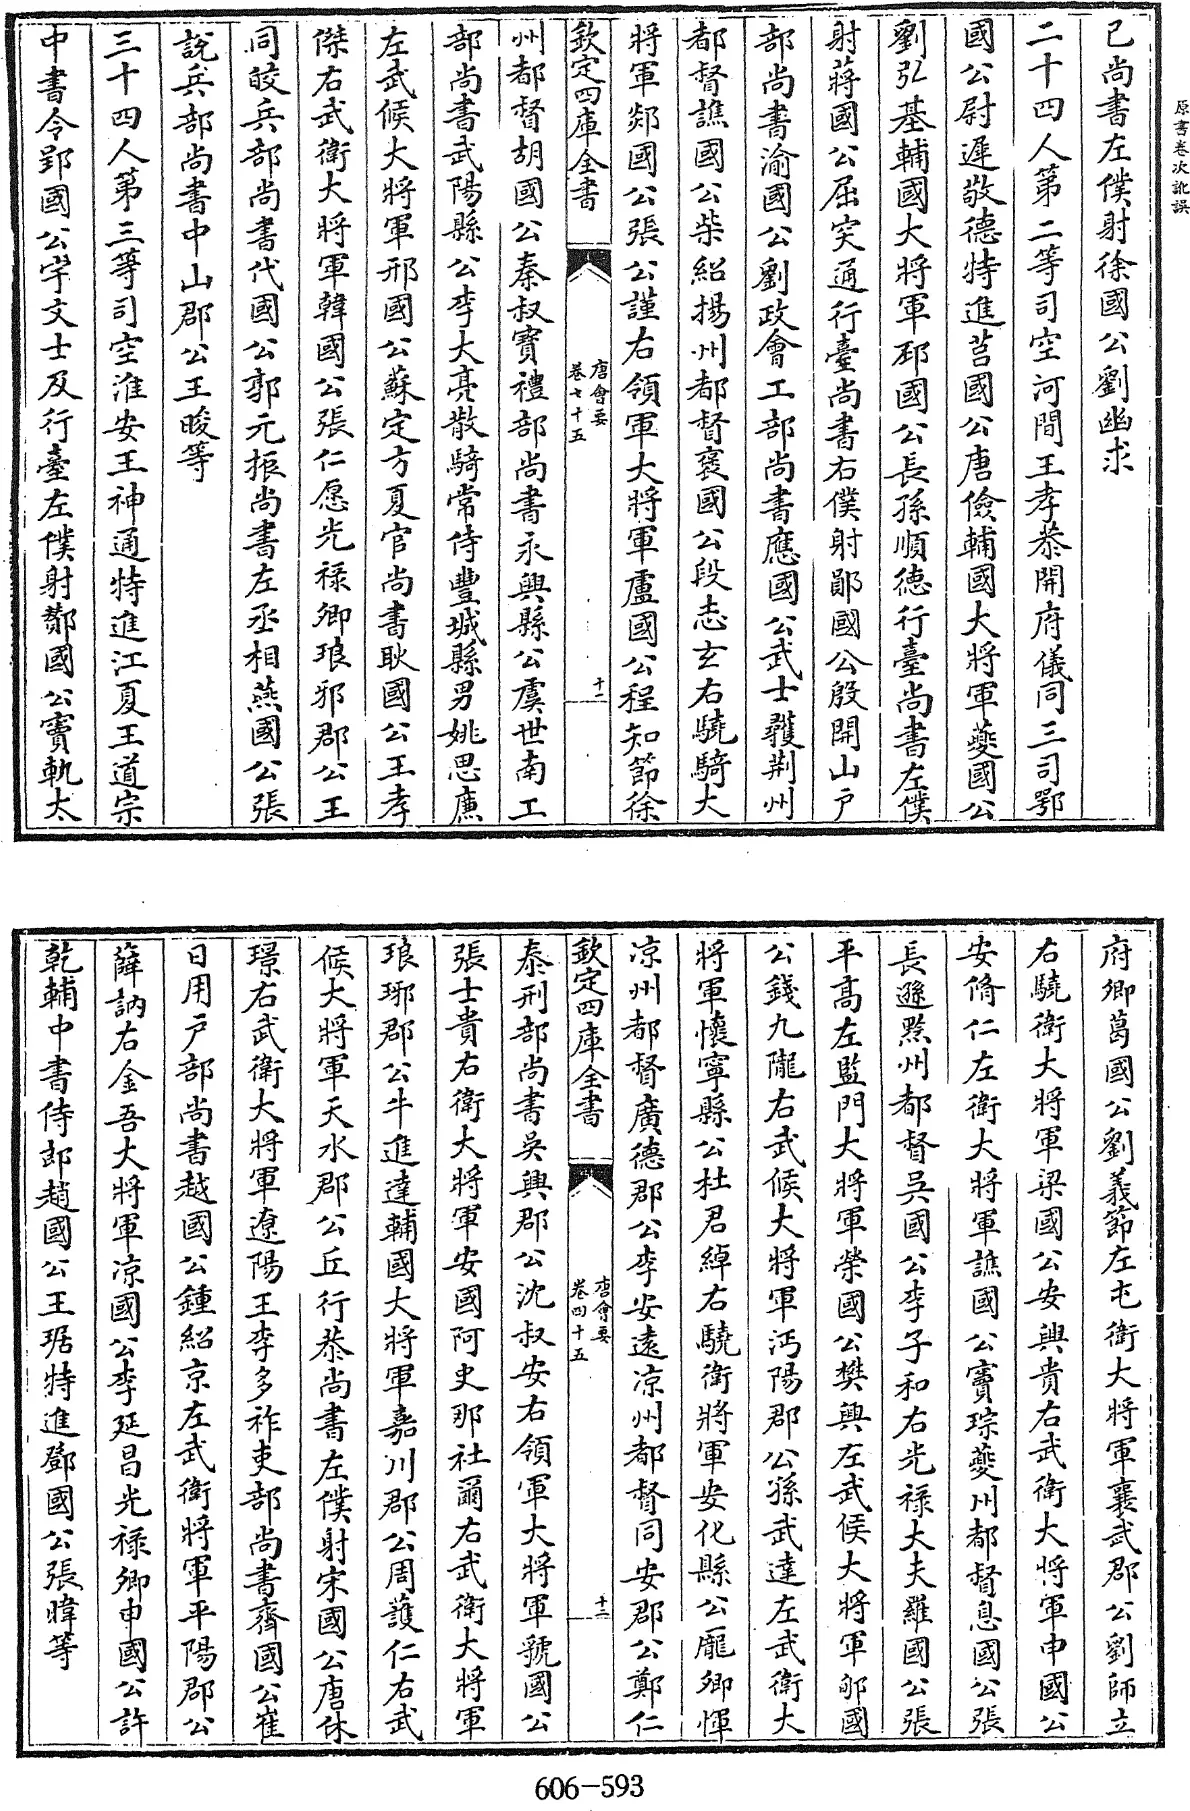 原書卷次訛誤
已尚書左僕射徐國公劉幽求
二十四人第二等司空河間王孝恭開府儀同三司鄂
國公尉遲敬德特進莒國公唐儉輔國大將軍夔國公
劉弘基輔國大將軍邳國公長孫順德行臺尚書左僕
射蔣國公屈突通行臺尚書右僕射鄖國公殷開山户
部尚書渝國公劉政會工部尚書應國公武士彠荆州
都督譙國公柴紹揚州都督褒國公段志玄右驍騎大
將軍郯國公張公謹右領軍大將軍盧國公程知節徐
欽定四庫全書
唐會要
卷七十五
十一
州都督胡國公秦叔寶禮部尚書永興縣公虞世南工
部尚書武陽縣公李大亮散騎常侍豐城縣男姚思廉
左武候大將軍邢國公蘇定方夏官尚書耿國公王孝
傑右武衛大將軍韓國公張仁愿光禄卿琅邪郡公王
同皎兵部尚書代國公郭元振尚書左丞相燕國公張
說兵部尚書中山郡公王晙等
三十四人第三等司空淮安王神通特進江夏王道宗
中書令郢國公宇文士及行臺左僕射鄼國公竇軌太
府卿葛國公劉義節左屯衛大將軍襄武郡公劉師立
右驍衛大將軍梁國公安興貴右武衛大將軍申國公
安脩仁左衛大將軍譙國公竇琮夔州都督息國公張
長遜黙州都督吳國公李子和右光禄大夫羅國公張
平高左監門大將軍榮國公樊興左武侯大將軍郇國
公錢九隴右武候大將軍沔陽郡公孫武達左武衛大
將軍懷寧縣公杜君綽右驍衛將軍安化縣公龎卿惲
凉州都督廣德郡公李安遠凉州都督同安郡公鄭仁
欽定四庫全書
唐會要
卷四十五
十二
泰刑部尚書吳興郡公沈叔安右領軍大將軍虢國公
張士貴右衛大將軍安國阿史那社爾右武衛大將軍
琅琊郡公牛進達輔國大將軍嘉川郡公周護仁右武
候大將軍天水郡公丘行恭尚書左僕射宋國公唐休
璟右武衛大將軍遼陽王李多祚吏部尚書齊國公崔
日用户部尚書越國公鍾紹京左武衛將軍平陽郡公
薛訥右金吾大將軍凉國公李延昌光禄卿申國公許
乾輔中書侍郎趙國公王琚特進鄧國公張暐等
606-593